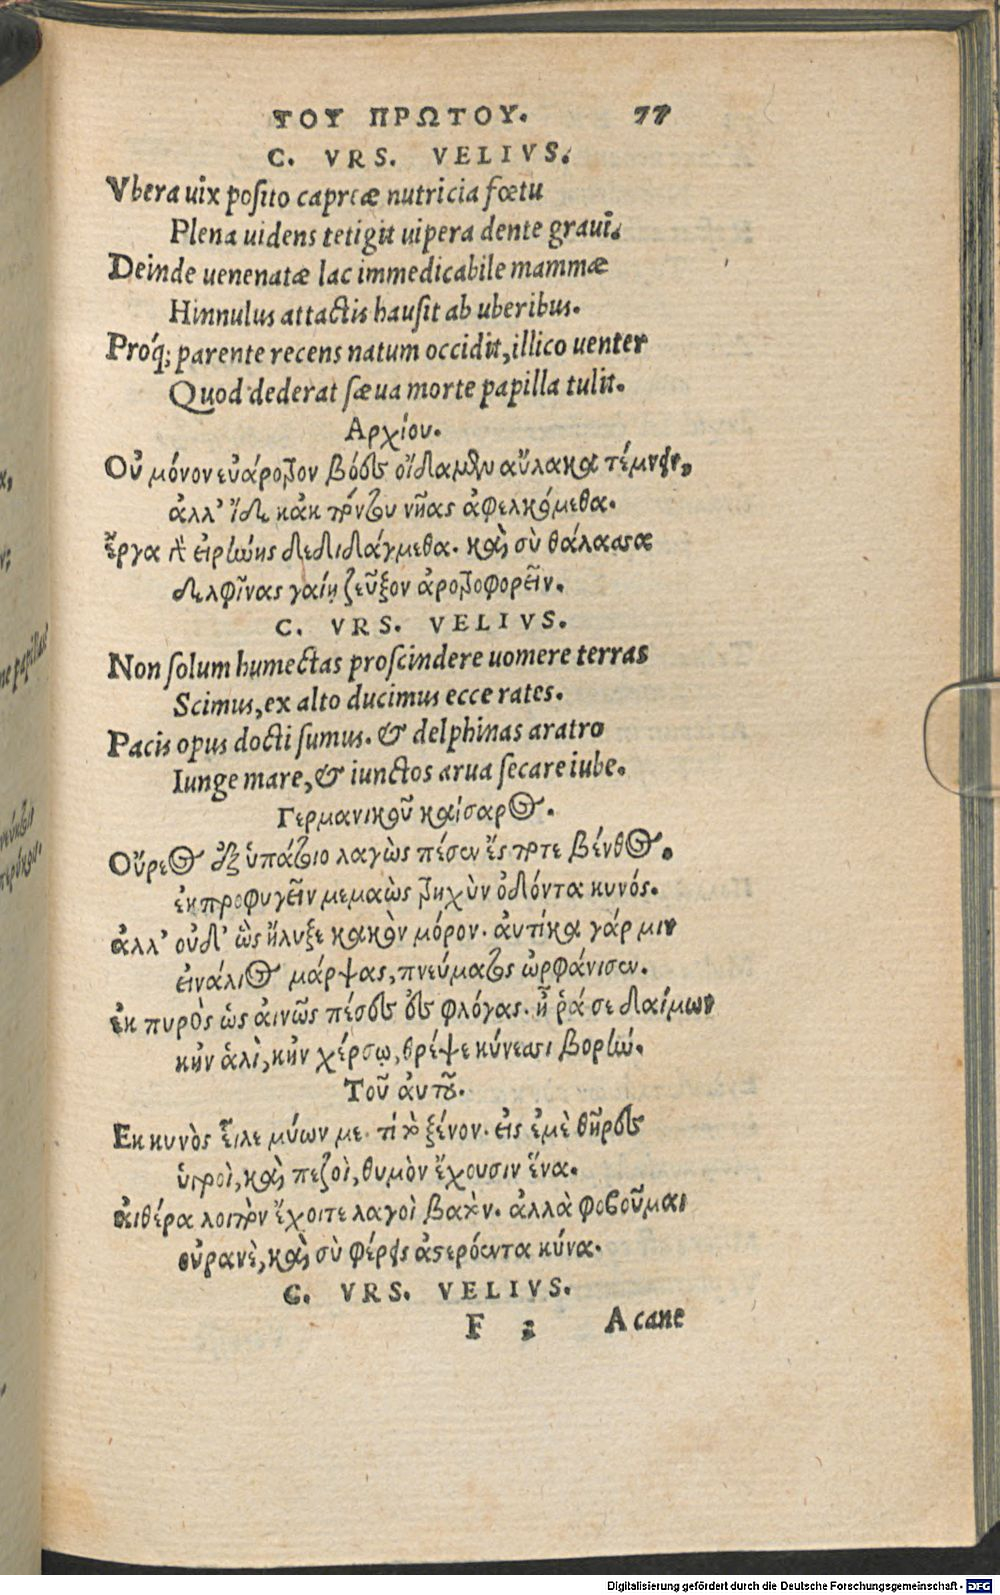 ΤΟΥ ΠΡΩΤΟΥ. 77
C. VRS. VELIVS.
Vbera uix posito capreæ nutricia fœtu
Plena uidens tetigit uipera dente graui.
Deinde uenenatæ lac immedicabile mammæ
Hinnulus attactis hausit ab uberibus.
Proq́; parente recens natum occidit, illico uenter
Quod dederat sæua morte papilla tulit.
Αρχίου.
Οὐ μόνον εὐάροτρον βόες οἴδαμεν αὔλακα τέμνειν,
ἀλλ' ἴδε κἀκ πόντου νῆας ἀφελκόμεθα.
ἔργα γὰρ εἰρεσίης δεδιδάγμεθα. καὶ σὺ θάλασσα
δελφῖνας γαίῃ ζεῦξον ἀροτροφορεῖν.
C. VRS. VELIVS.
Non solum humectas proscindere uomere terras
Scimus, ex alto ducimus ecce rates.
Pacis opus docti sumus. & delphinas aratro
Iunge mare, & iunctos arua secare iube.
Γερμανικοῦ καίσαρος.
Οὔρεος ἐξ ὑπάτοιο λαγὼς πέσεν ἔς ποτε βένθος,
ἐκπροφυγεῖν μεμαὼς τρηχὺν ὀδόντα κυνός.
ἀλλ' οὐδ' ὣς ἤλυξε κακὸν μόρον. ἀυτίκα γάρ μιν
εἰνάλιος μάρψας, πνεύματος ὠρφάνισεν.
ἐκ πυρὸς ὡς ἀινῶς πέσες ἐς φλόγας. ἦ ῥά σε δαίμων
κῂν ἁλὶ, κῂν χέρσῳ, θρέψε κύνεσσι βορήν.
Τοῦ ἀυτοῦ.
Εκ κυνὸς εἷλε κύων με. τί τὸ ξένον. εἰς ἐμὲ θῆρες
ὑγροὶ, καὶ πεζοὶ, θυμὸν ἔχουσιν ἕνα.
ἀιθέρα λοιπὸν ἔχοιτε λαγοὶ βατὸν. ἀλλὰ φοβοῦμαι
οὐρανὲ, καὶ σὺ φέρεις ἀστερόεντα κύνα.
C. VRS. VELIVS.
F 3 A cane
Digitalisierung gefördert durch die Deutsche Forschungsgemeinschaft - DFG